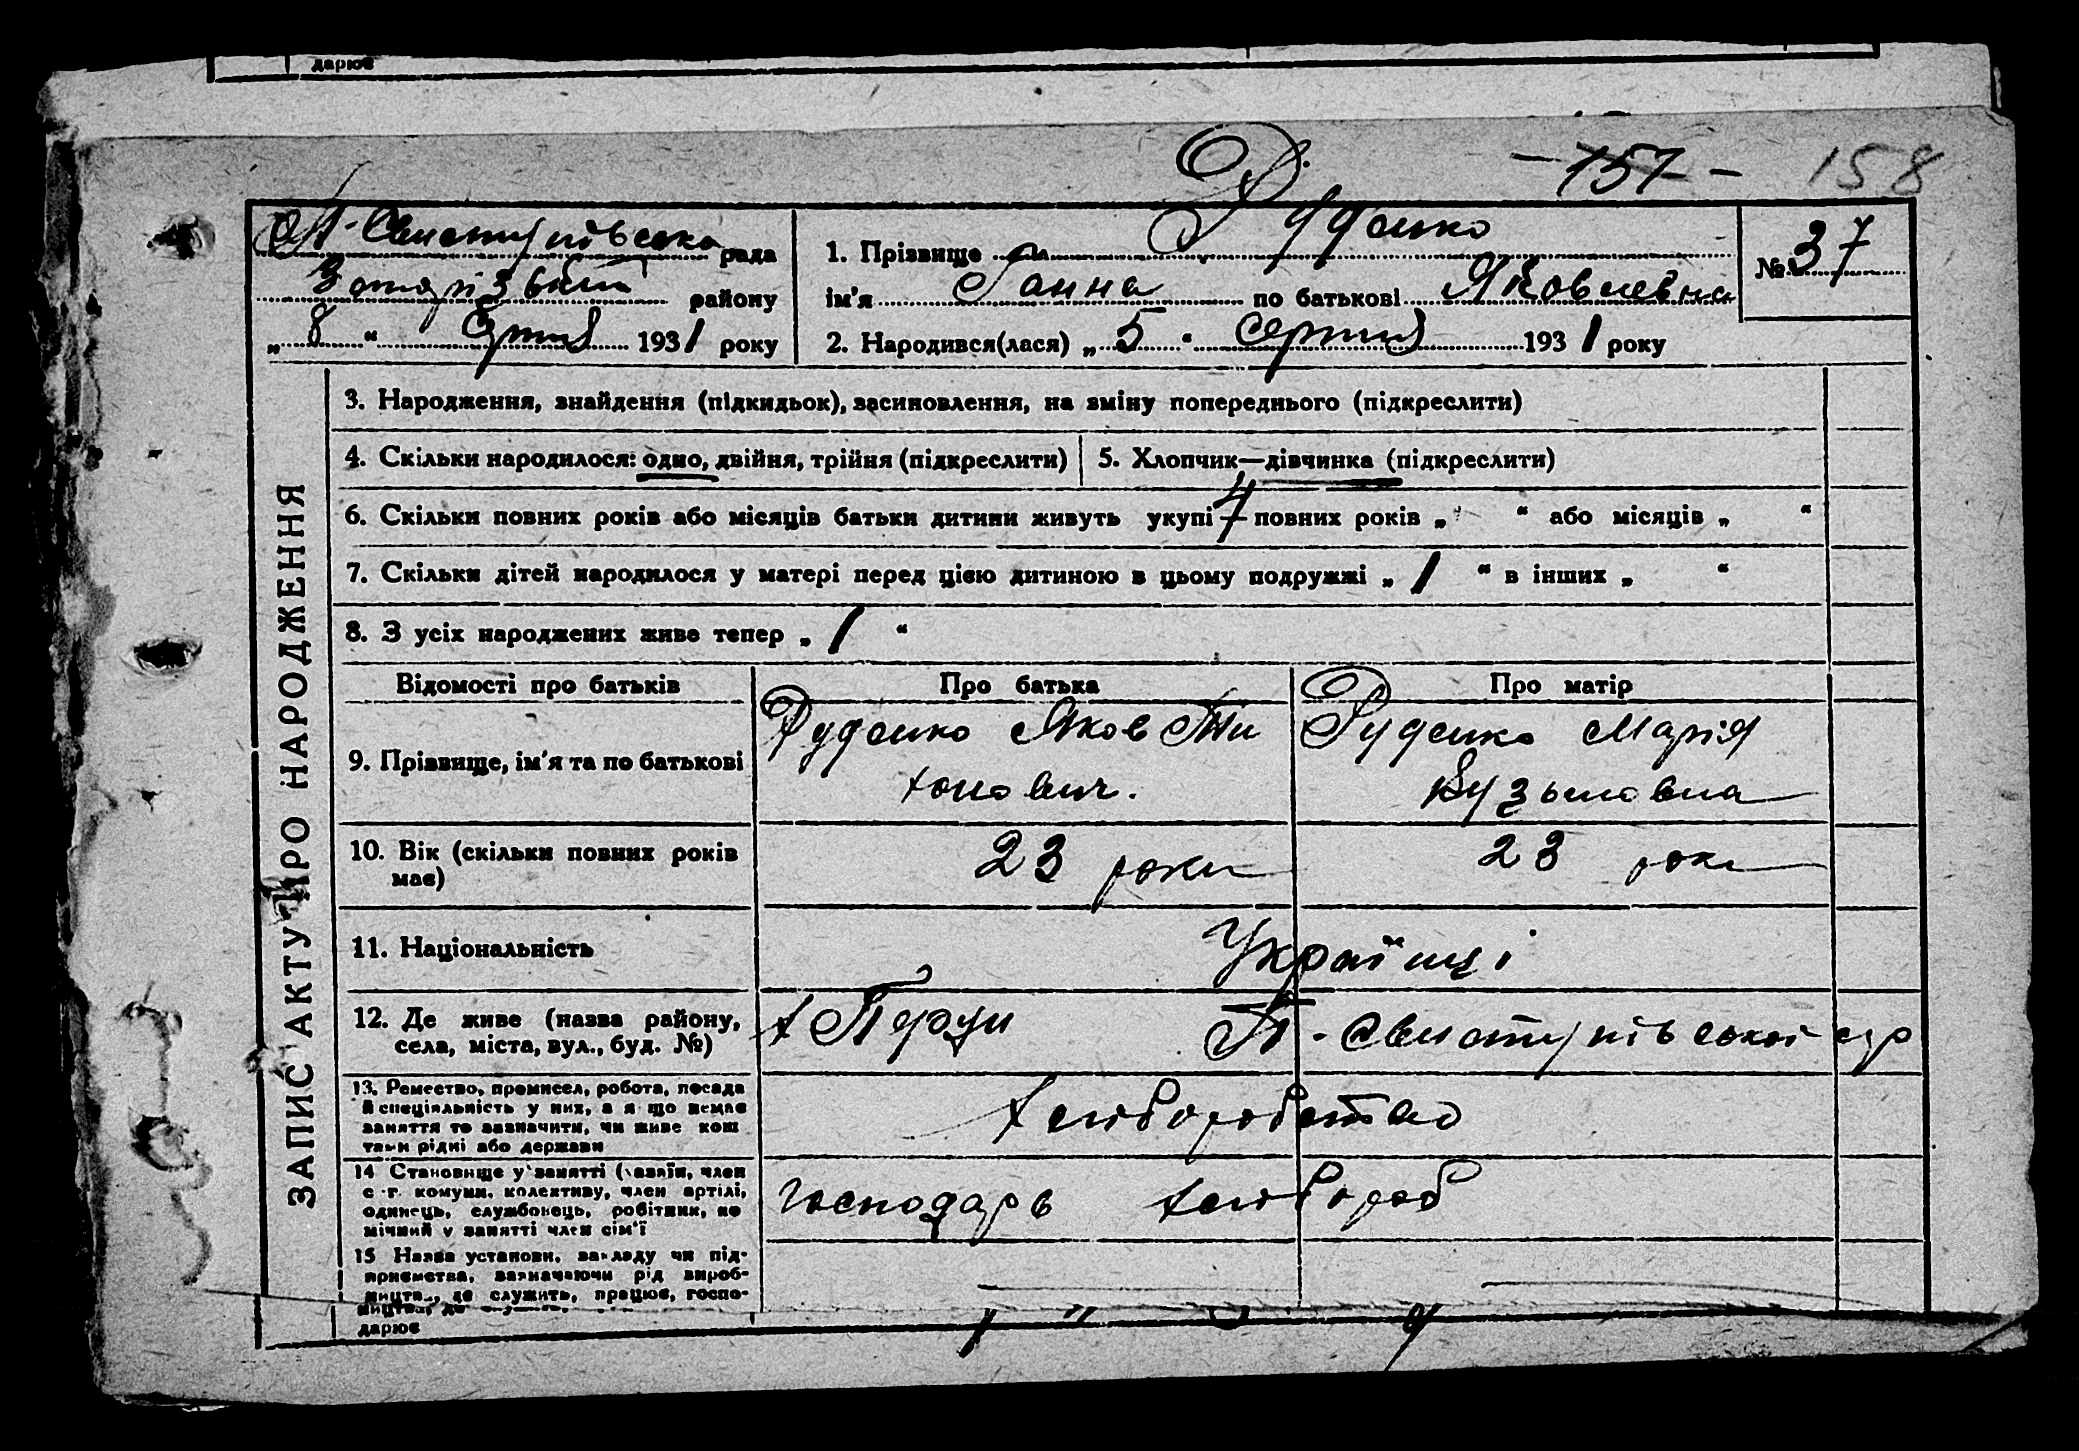 дарює
- 157 - 158
П-Свистунівська рада
району
„ 8 “ Серпня 1931 року
1. Прізвище Руденко
ім'я Ганна по батькові Яковлевна
2. Народився(лася) „ 5 “ Серпня 1931 року
№ 37
ЗАПИС АКТУ ПРО НАРОДЖЕННЯ
3. Народження, знайдення (підкидьок), засиновлення, на зміну попереднього (підкреслити)
4. Скільки народилося: одно, двійня, трійня (підкреслити)
5. Хлопчик—дівчинка (підкреслити)
6. Скільки повних років або місяців батьки дитини живуть укупі 4 повних років „ “ або місяців „ “
7. Скільки дітей народилося у матері перед цією дитиною в цьому подружжі „ 1 “ в інших „ “
8. З усіх народжених живе тепер „ 1 “
Відомості про батьків
Про батька
Про матір
9. Прізвище, ім'я та по батькові
Руденко Яков Ти
хонович.
Руденко Марія
Кузьмовна
10. Вік (скільки повних років
має)
23 роки
23 роки
11. Національність
Українці
12. Де живе (назва району,
села, міста, вул., буд. №)
х П-Свистунівської с/р
13. Ремество, промисел, робота, посада
й спеціяльність у них, а я що немає
заняття то зазначити, чи живе кош
тами рідні або держави
хліборобство
14 Становище у занятті (хазяїн, член
с.-г. комуни, колективу, член артілі,
одинець, службовець, робітник, по
мічний у занятті член сім'ї
господарь хлібороб
15 Назва установи, закладу чи під-
приємства, зазначаючи рід вироб-
ництва, де служить, працює, госпо-
дарює